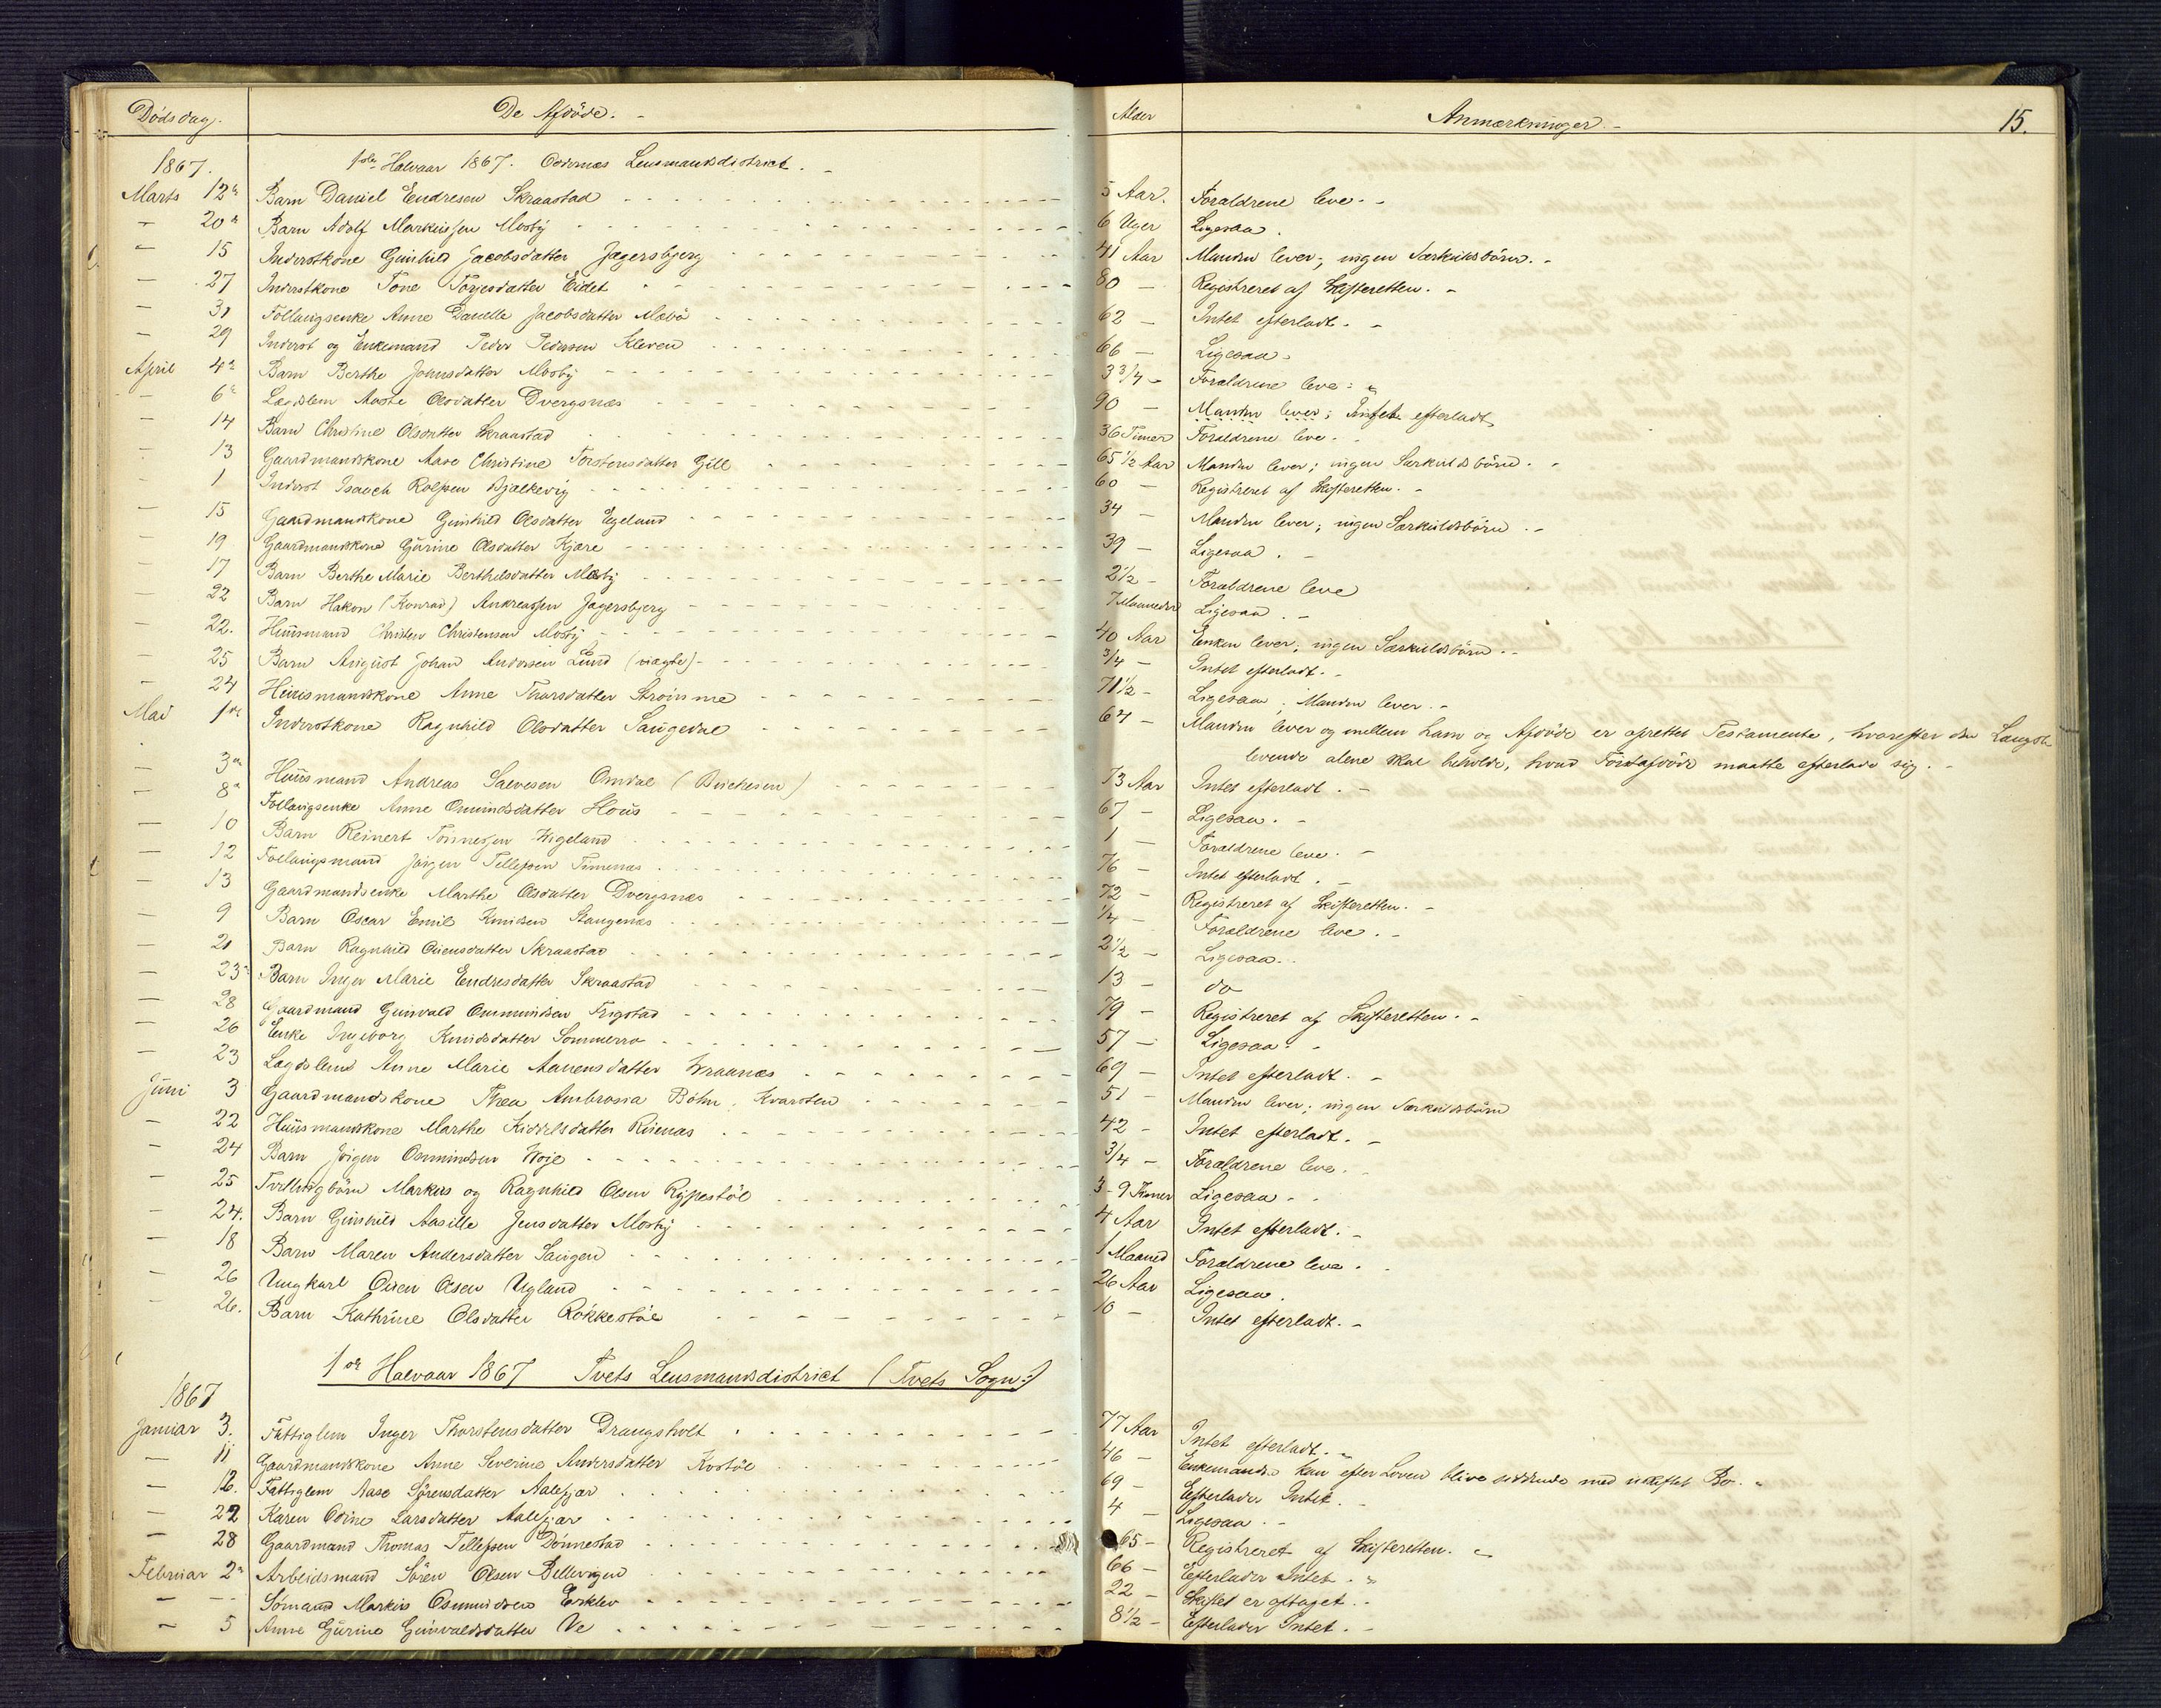 Dödsdag. De Afdöde. Alder Anmærkninger 15.
1867. 1ste Halvaar 1867. Oddernes Lensmandsdistrict.
Marts 12te Barn Daniel Endresen Skraastad 5 Aar. Forældrene leve.
— 20de Barn Adolf Markussen Mosby 6 Uger Ligesaa.
— 15 Inderstkone Gunhild Jacobsdatter Jægersbjerg 41 Aar Manden lever; ingen Særkuldsbörn.
— 27 Inderstkone Tone Torjesdatter Eidet 80 — Registreret af Skifteretten.
— 31 Follaugsenke Anne Danelle Jacobsdatter Mæbö 62 — Intet efterladt.
— 29 Inderst og Enkemand Peder Pedersen Kleven 66 — Ligesaa
April 4de Barn Berthe Johnsdatter Mosby 3 3/4 — Forældrene leve
— 6te Lægdslem Aaste Olsdatter Dvergsnæs 90 — Manden lever; Intet efterladt
— 14 Barn Christine Olsdatter Skraastad 36 Timer Forældrene leve.
— 13 Gaardmandskone Aase Christine Torstensdatter Gill 65 1/2 Aar Manden lever; ingen Særkuldsbörn.
— 1 Inderst Isaach Rolfsen Bjelkevig 60 — Registreret af Skifteretten.
— 15 Gaardmandskone Gunhild Olsdatter Egeland 34 — Manden lever; ingen Særkuldsbörn
— 19 Gaardmandskone Gurine Olsdatter Kjære 39 — Ligesaa.
— 17 Barn Berthe Marie Berthelsdatter Mosby 2 1/2 — Forældrene leve
— 22 Barn Hakon (Konrad) Andreassen Jægersbjerg 7 Maaneder Ligesaa.
— 22. Huusmand Christen Christensen Mosby 40 Aar Enken lever; ingen Særkuldsbörn
— 25 Barn August Johan Andersen Lund (uægte) 3/4 — Intet efterladt.
— 24 Huusmandskone Anne Thorsdatter Strömme 71 1/2 — Ligesaa; Manden lever.
Mai 1ste Inderstkone Ragnhild Olsdatter Saugedal 64 — Manden lever og mellem ham og Afdöde er oprettet Testamente, hvorefter den Længst-
levende alene skal beholde, hvad Förstafdöde maatte efterlade sig.
— 3die Huusmand Andreas Salvesen Omdal 73 Aar Intet efterladt.
— 8de Follaugsenke Anne Omundsdatter Hous 67 — Ligesaa.
— 10 Barn Reinert Tönnessen Wigeland 1 — Forældrene leve.
— 12 Follaugsmand Jörgen Tellefsen Timenes 76 — Intet efterladt.
— 13 Gaardmandsenke Marthe Olsdatter Dvergsnæs 72 — Registreret af Skifteretten.
— 9 Barn Oscar Emil Knudsen Stangenæs 1/4 — Forældrene leve.
— 21 Barn Ragnhild Ouensdatter Skraastad 2 1/2 — Ligesaa.
— 23 Barn Inger Marie Endresdatter Skraastad 13 — do
— 28 Gaardmand Gunvald Ommundsen Frigstad 79 — Registreret af Skifteretten.
— 26 Enke Ingeborg Knudsdatter Sommerro 57 — Ligesaa.
— 23 Lægdslem Anne Marie Aanensdatter Wraanæs 69 — Intet efterladt.
Juni 3 Gaardmandskone Thea Ambrosia Böhn, Kvarsten 51 — Manden lever; ingen Særkuldsbörn
— 22 Huusmandskone Marthe Kiddelsdatter Ruenæs 42 — Intet efterladt.
— 24 Barn Jörgen Ommundsen Woje 3/4 — Forældrene leve.
— 25 Tvillingbörn Markus og Ragnhild Olsen Rypestöl 3-9 Timer Ligesaa
— 24. Barn Gunhild Aasille Jensdatter Mosby 4 Aar Intet efterladt.
— 18 Barn Maren Andersdatter Saugen 1 Maaned Forældrene leve.
— 26 Ungkarl Ouen Olsen Ugland 26 Aar Ligesaa.
— 26. Barn Kathrine Olsdatter Rokkestöl 10 — Intet efterladt.
1ste Halvaar 1867 Tvets Lensmandsdistrict (Tvets Sogn:)
1867
Januar 3. Fattiglem Inger Thorstensdatter Drangsholt 77 Aar Intet efterladt.
— 11 Gaardmandskone Anne Severine Andersdatter Kostöl 46 — Enkemanden kan efter Loven blive siddende med uskiftet Bo.
— 12. Fattiglem Aase Sörensdatter Aalefjær 69 — Efterlader Intet.
— 22 Karen Odine Larsdatter Aalefjær 4 — Ligesaa
— 28 Gaardmand Thomas Tellefsen Dönnestad 65 — Registreret af Skifteretten.
Februar 2den Arbeidsmand Sören Olsen Bellevigen 66 — Efterlader Intet.
— — Sömand Markus Osmundsen Esklev 22 — Skiftet er optaget.
— 5 Anne Gurine Gunvaldsdatter Ve 8 1/2 — Efterlader Intet.